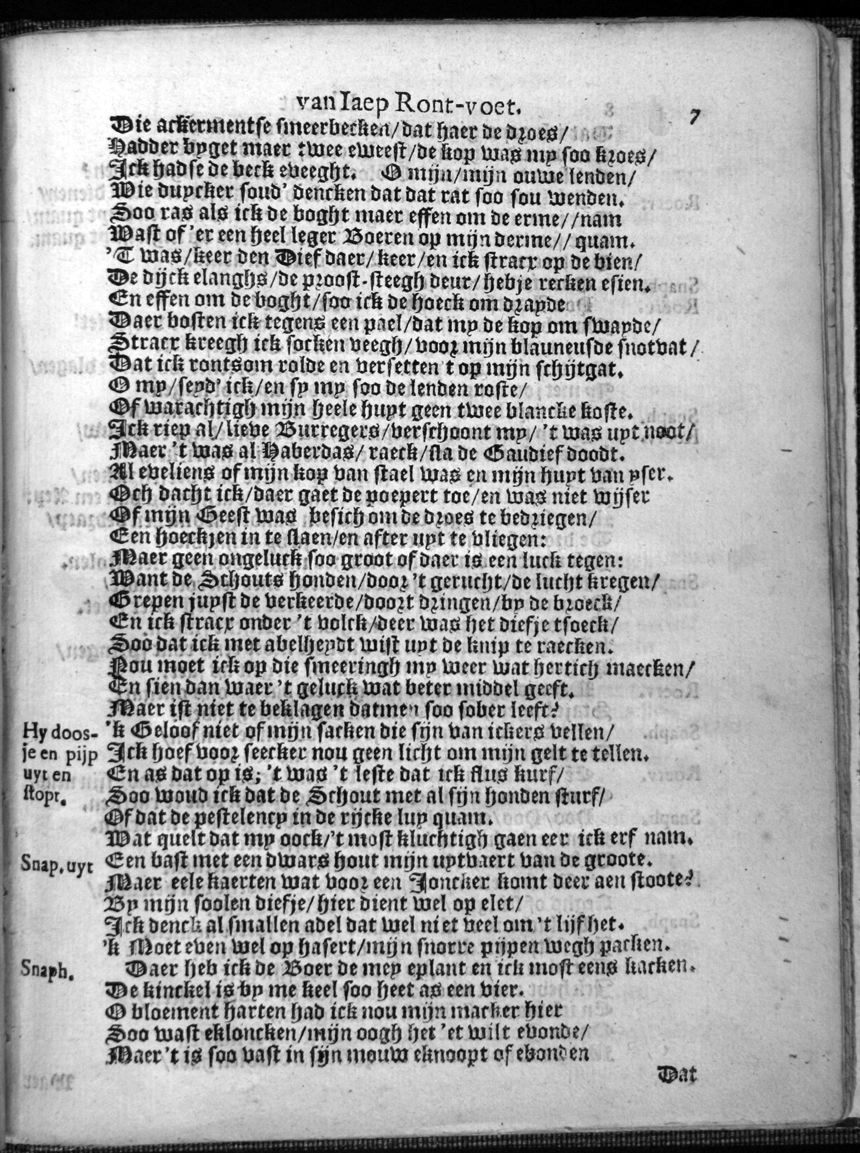 van Iaep Ront-voet.
7
Die ackermentse smeerbecken/dat haer de droes/
Hadder byget maer twee eweest/de kop was my soo kroes/
Ick hadse de beck eveeght. O mijn/mijn ouwe lenden/
Wie duycker soud' dencken dat dat rat soo sou wenden.
Soo ras als ick de boght maer effen om de erme//nam
Wast of 'er een heel leger Boeren op mijn derme//quam.
'T was/keer den Dief daer/keer/en ick stracx op de bien/
De dijck elanghs/de proost-steegh deur/hebje recken esien.
En effen om de boght/soo ick de hoeck om drayde
Daer bosten ick tegens een pael/dat my de kop om swayde/
Stracx kreegh ick socken veegh/voor mijn blauneusde snotvat/
Dat ick rontsom rolde en versetten 't op mijn schijtgat.
O my/seyd' ick/en sy my soo de lenden roste/
Of warachtigh mijn heele huyt geen twee blancke koste.
Ick riep al/lieve Burregers/verschoont my/ 't was uyt noot/
Maer 't was al Haberdas/raeck/sla de Gaudief doodt.
Al eveliens of mijn kop van stael was en mijn huyt van yser.
Och dacht ick/daer gaet de poepert toe/en was niet wijser
Of mijn Geest was besich om de droes te bedriegen/
Een hoeckjen in te slaen/en after uyt te vliegen:
Maer geen ongeluck soo groot of daer is een luck tegen:
Want de Schouts honden/door 't gerucht/de lucht kregen/
Grepen juyst de verkeerde/doort dringen/by de broeck/
En ick stracx onder 't volck/deer was het diefje tsoeck/
Soo dat ick met abelheydt wist uyt de knip te raecken.
Nou moet ick op die smeeringh my weer wat hertich maecken/
En sien dan waer 't geluck wat beter middel geeft.
Maer ist niet te beklagen datmen soo sober leeft?
Hy doos-
je en pijp
uyt en
stopt.
'k Geloof niet of mijn sacken die sijn van ickers vellen/
Ick hoef voor seecker nou geen licht om mijn gelt te tellen.
En as dat op is; 't was 't leste dat ick flus kurf/
Soo woud ick dat de Schout met al sijn honden sturf/
Of dat de pestelency in de rijcke luy quam.
Wat quelt dat my oock/'t most kluchtigh gaen eer ick erf nam.
Snap.uyt
Een bast met een dwars hout mijn uytvaert van de groote.
Maer eele kaerten wat voor een Joncker komt deer aen stoote?
By mijn soolen diefje/hier dient wel op elet/
Ick denck al smallen adel dat wel niet veel om 't lijf het.
'k Moet even wel op hasert/mijn snorre pijpen wegh packen.
Snaph.
Daer heb ick de Boer de mey eplant en ick most eens kacken.
De kinckel is by me keel soo heet as een vier.
O bloement harten had ick nou mijn macker hier
Soo wast ekloncken/mijn oogh het 'et wilt evonde/
Maer 't is soo vast in sijn mouw eknoopt of ebonden
Dat